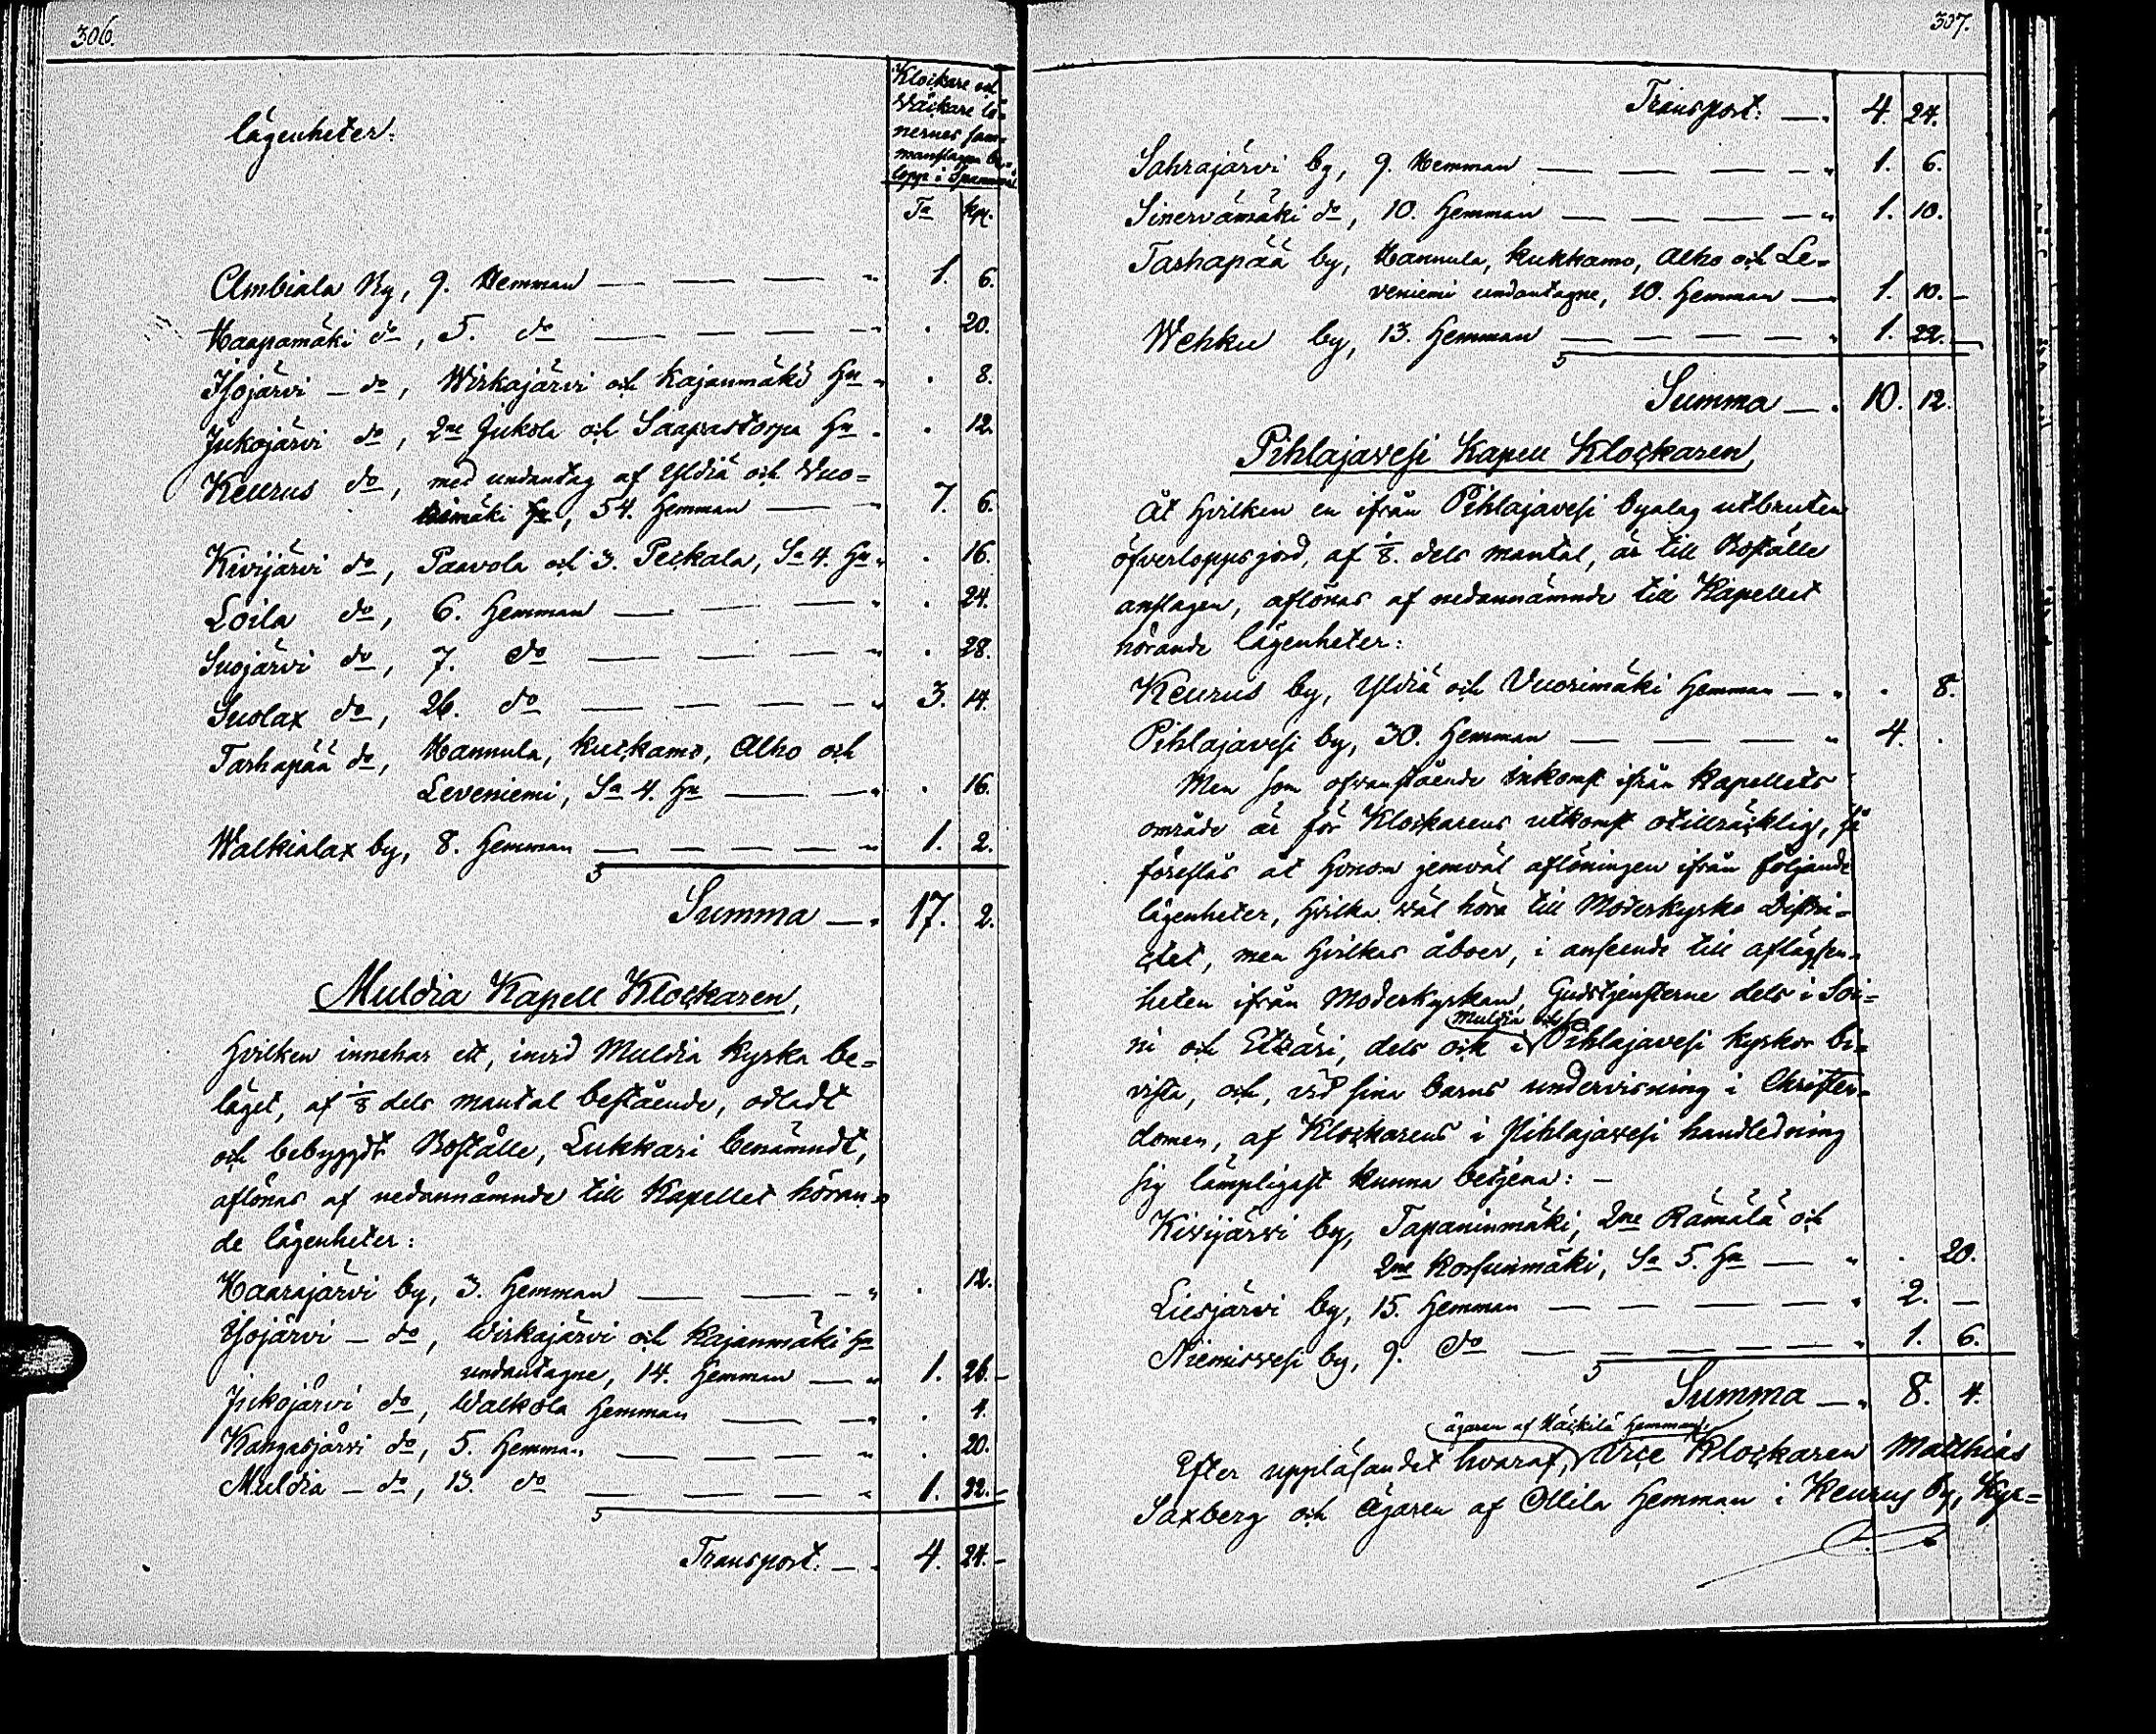 306.
Klockare och
Wäckare lö-
nernes sam-
manslagna be-
lopp i Spannmål
lägenheter:
Ta kpr.
Ambiala By, 9. Hemman — — — — " 1. 6.
Haapamäki do, 5. do — — — — " . 20.
Isojärvi — do, Wirkajärvi och Kajanmäki Hn " . 8.
Jukojärvi do, 2ne Jukola och Saaprastorpa Hn . . 12.
Keurus do, med undantag af Yldiä och Wuo-
rimäki Hn, 54. Hemman — — " 7. 6.
Kivijärvi do, Paavola och 3. Peckala, Sa 4. Hn " . 16.
Loila do, 6. Hemman — — — " . 24.
Suojärvi do, 7. do — — — — " . 28.
Suolax do, 26. do — — — — — " 3. 14.
Tarhapää do, Hannula, Kuckamo, Alho och
Leveniemi, Sa 4. Hn — — " . 16.
Walkialax by, 8. Hemman — — — — — " 1. 2.
Summa — . 17. 2.
Muldia Kapell Klockaren,
Hvilken innehar ett, invid Muldia Kyrka be-
läget, af 1/8 dels mantal bestående, odladt
och bebyggdt Boställe, Lukkari benämndt,
aflönas af nedannämnde till Kapellet höran-
de lägenheter:
Haarajärvi by, 3. Hemman — — — " . 12.
Isojärvi — do, Wirkajärvi och Kajanmäki Hn
undantagne, 14. Hemman — " 1. 26. —
Jukojärvi do, Walkola Hemman — — " . 4.
Kangasjärvi do, 5. Hemman — — — " . 20.
Muldia — do, 13. do — — — — " 1. 22. —
Transport: — . 4. 24. —
307.
Transport: — . 4. 24.
Sahrajärvi by, 9. Hemman — — — — " 1. 6.
Sinervämäki do, 10. Hemman — — — — " 1. 10.
Tarhapää by, Hannula, Kukkamo, Alho och Le-
veniemi undantagne, 10. Hemman — " 1. 10. —
Wehku by, 13. Hemman — — — — — " 1. 22. —
Summa — . 10. 12.
Pihlajavesi Kapell Klockaren,
Åt Hvilken en ifrån Pihlajavesi byalag utbruten
öfverloppsjord, af 1/8. dels mantal, är till Boställe
anslagen, aflönas af nedannämnde till Kapellet
hörande lägenheter:
Keurus by, Yldiä och Vuorimäki Hemman — " . 8.
Pihlajavesi by, 30. Hemman — — — " 4. .
Men som ofvanstående inkomst ifrån Kapellets
område är för Klockarens utkomst otillräcklig, så
föreslås åt Honom jemväl aflöningen ifrån följande
lägenheter, Hvilka väl höra till Moderkyrko Distri-
ctet, men Hvilkas åboer, i anseende till aflägsen-
heten ifrån Moderkyrkan, Gudstjensterne dels i Soi-
Muldia och
ni och Etzäri, dels ock i Pihlajavesi Kyrkor bi-
vista, och, vid sina barns undervisning i Christen-
domen, af Klockarens i Pihlajavesi handledning
sig lämpligast kunna betjena: —
Kivijärvi by, Tapaninmäki, 2ne Rämälä och
2ne Korsunmäki, Sa 5. Hn — " . 20.
Liesjärvi by, 15. Hemman — — — — — " 2. —
Niemisvesi by, 9. do — — — — — " 1. 6.
Summa — . 8. 4.
ägaren af Häckilä Hemman,
Efter uppläsandet hvaraf, Vice Klockaren Matthias
Saxberg och ägaren af Ollila Hemman i Keurus by, Kyr-